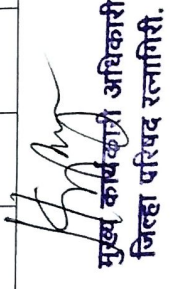 मुख्य कार्यकारी अधिकारी
जिल्हा परिषद रत्नागिरी.